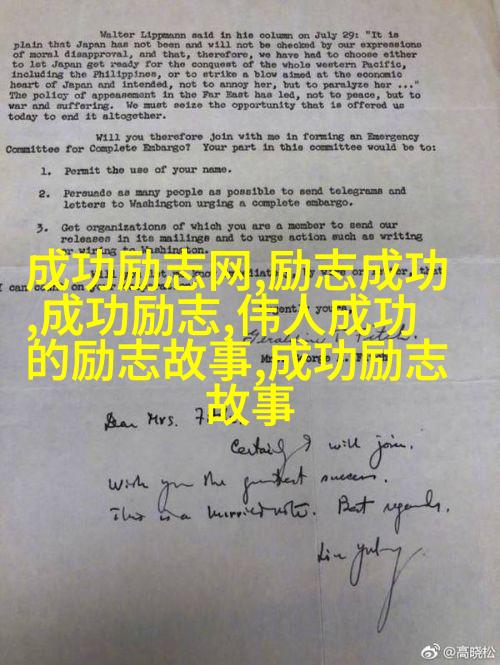 Walter Lippmann said in his column on July 29: "It is
plain that Japan has not been and will not be checked by our expressions
of moral disapproval, and that, therefore, we have had to choose either
to let Japan get ready for the conquest of the whole western Pacific,
including the Philippines, or to strike a blow aimed at the economic
heart of Japan and intended, not to annoy her, but to paralyze her ..."
The policy of appeasement in the Far East has led, not to peace, but to
war and suffering. We must seize the opportunity that is offered us
today to end it altogether.
Will you therefore join with me in forming an Emergency
Committee for Complete Embargo? Your part in this committee would be to:
1. Permit the use of your name.
2. Persuade as many people as possible to send telegrams and
letters to Washington urging a complete embargo.
3. Get organizations of which you are a member to send our
releases in its mailings and to urge action such as writing
or wiring to Washington.
成功励志网,励志成功
,成功励志,伟人成功
的励志故事,成功励志
故事
that
I can
Mrs. George
Dear Mrs.
Certainly I will join.
Wish you the greatest success.
This is a hurried note. Best regards.
Lin Yutang
@高晓松